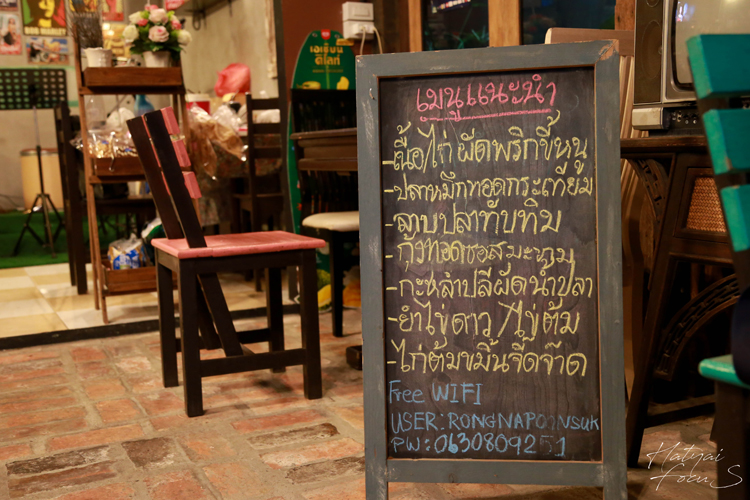 BOB MARLEY
เมนูแนะนำ
-เนื้อ/ไก่ ผัดพริกขี้หนู
-ปลาหมึกทอดกระเทียม
-ลาบปลาทับทิม
-กุ้งทอดซอสมะขาม
-กะหล่ำปลีผัดน้ำปลา
-ยำไข่ดาว/ไข่ต้ม
-ไก่ต้มขมิ้นจี๊ดจ๊าด
Free WIFI
USER:RONGNAPOANSUK
PW:0630809251
Hatyai
Focus